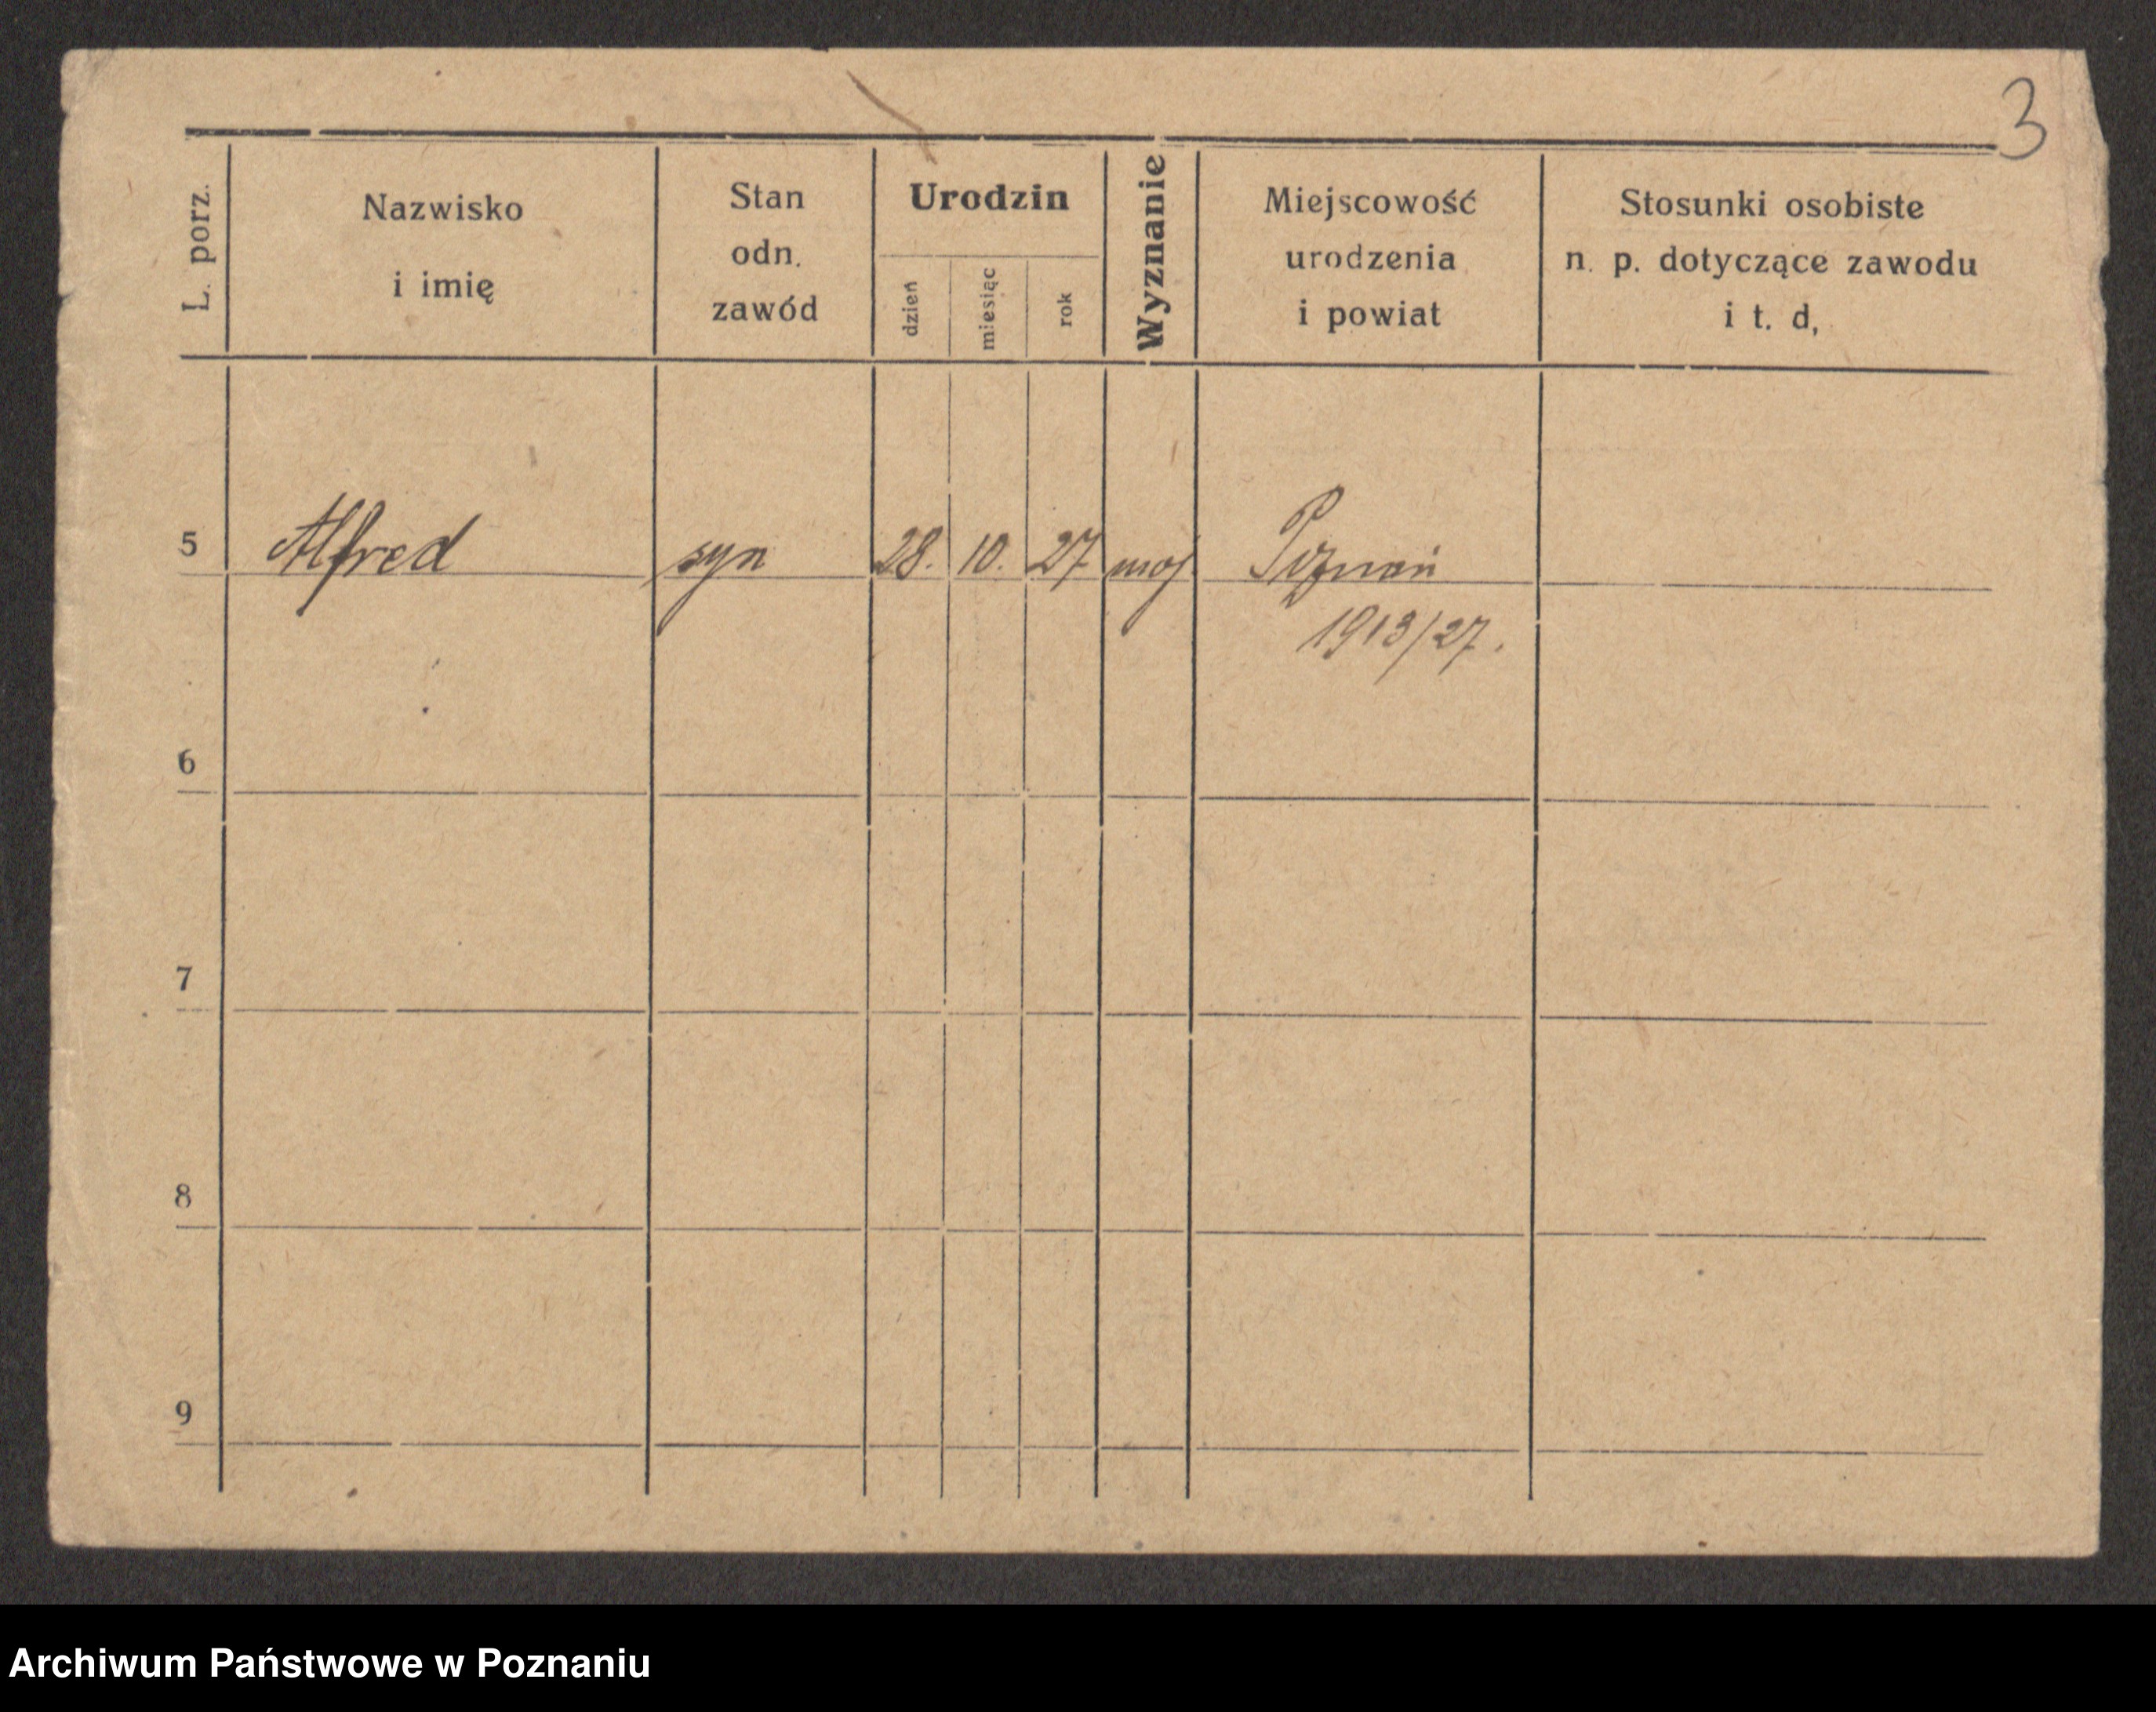 3
L. porz.
Nazwisko
i imię
Stan
odn.
zawód
Urodzin
dzień
miesiąc
rok
Wyznanie
Miejscowość
urodzenia
i powiat
Stosunki osobiste
n. p. dotyczące zawodu
i t. d,
5 Alfred syn 28. 10. 27 moj. Poznań
1913/27.
6
7
8
9
Archiwum Państwowe w Poznaniu